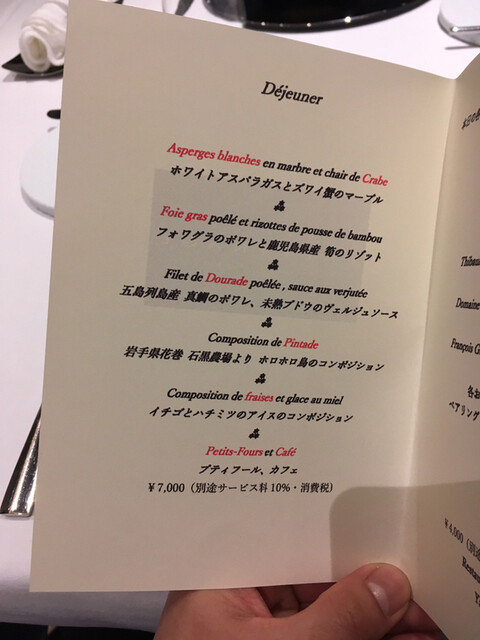 Déjeuner
Asperges blanches en marbre et chair de Crabe
ホワイトアスパラガスとズワイ蟹のマーブル
Foie gras poêlé et rizottes de pousse de bambou
フォワグラのポワレと鹿児島県産 筍のリゾット
Filet de Dourade poêlée , sauce aux verjutée
五島列島産 真鯛のポワレ、未熟ブドウのヴェルジュソース
Composition de Pintade
岩手県花巻 石黒農場より ホロホロ鳥のコンポジション
Composition de fraises et glace au miel
イチゴとハチミツのアイスのコンポジション
Petits-Fours et Café
プティフール、カフェ
￥7,000（別途サービス料 10%・消費税）
Domaine
François G
ペアリング
￥4,000（別